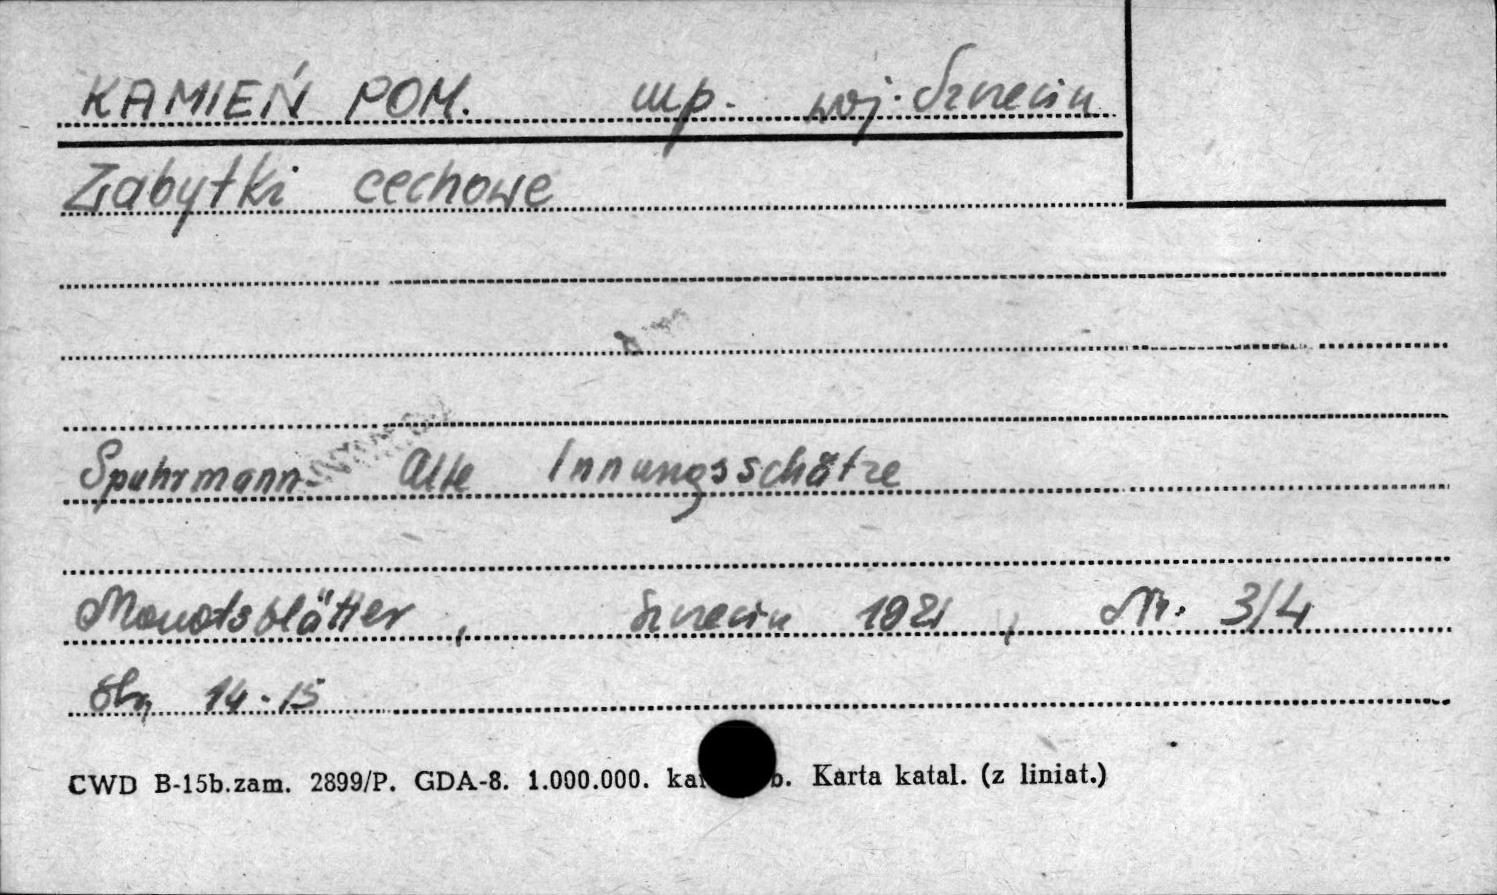 KAMIEŃ POM. mp. woj. Szczecin
Zabytki cechowe
Spuhrmann Alte Innungsschätze
Monatsblätter, Szczecin 1921, Nr. 3/4
Str. 14-15
CWD B-15b.zam. 2899/P. GDA-8. 1.000.000. b. Karta katal. (z liniat.)